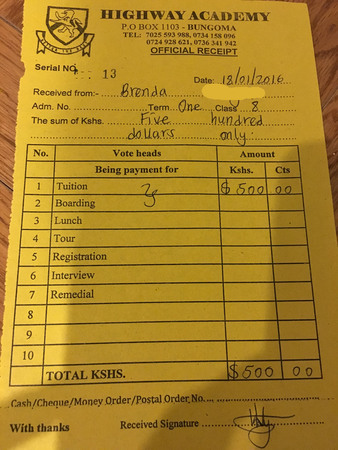 HIGHWAY ACADEMY
P.O BOX 1103 - BUNGOMA
TEL: 7025 593 988, 0734 158 096
0724 928 621, 0736 341 942
OFFICIAL RECEIPT
Serial NO. 13
Date: 18/01/2016
Received from:- Brenda
Adm. No. Term One Class 8
The sum of Kshs. Five hundred
dollars only.
No. Vote heads Amount
Being payment for Kshs. Cts
1 Tuition $500 00
2 Boarding
3 Lunch
4 Tour
5 Registration
6 Interview
7 Remedial
8
9
10
TOTAL KSHS. $500 00
Cash/Cheque/Money Order/Postal Order No.
With thanks Received Signature